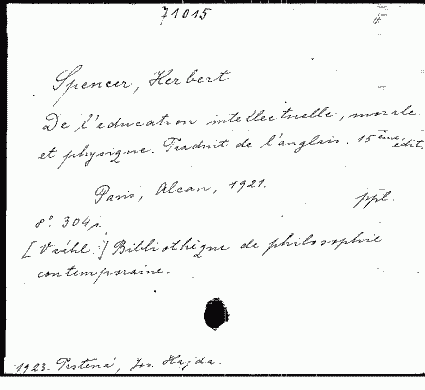 71015
Spencer, Herbert
De l'education intellectuelle, morale
et physique. Traduit de l'anglais. 15ème édit.
Paris, Alcan, 1921.
ppl.
8° 304 s.
[V záhl.:] Bibliothèque de philosophie
contemporaine.
1923. Trstená, Jos. Hajda.